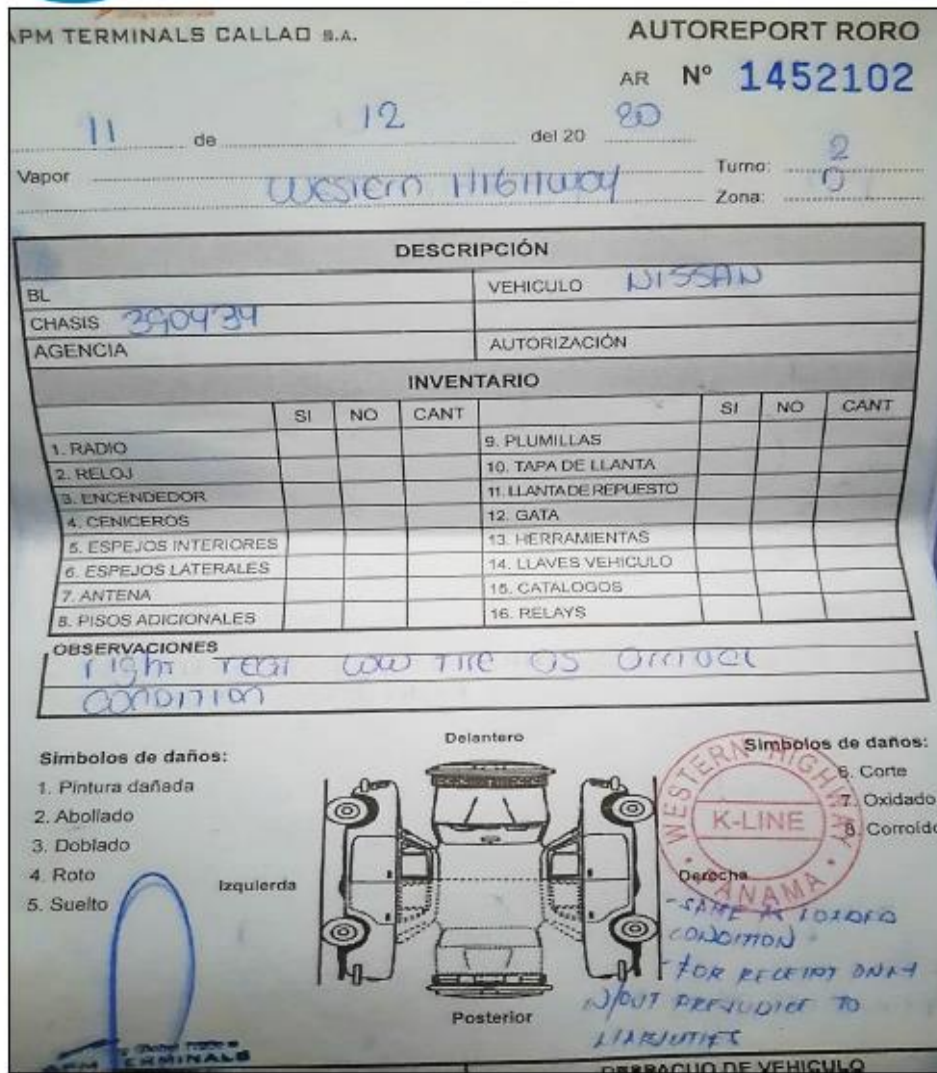 APM TERMINALS CALLAO S.A.
AUTOREPORT RORO
AR Nº 1452102
11 de 12 del 20 20
Vapor Western Highway
Turno: 2
Zona: 0
DESCRIPCIÓN
BL
VEHICULO NISSAN
CHASIS 390439
AGENCIA
AUTORIZACIÓN
INVENTARIO
SI NO CANT SI NO CANT
1. RADIO 9. PLUMILLAS
2. RELOJ 10. TAPA DE LLANTA
3. ENCENDEDOR 11. LLANTA DE REPUESTO
4. CENICEROS 12. GATA
5. ESPEJOS INTERIORES 13. HERRAMIENTAS
6. ESPEJOS LATERALES 14. LLAVES VEHICULO
7. ANTENA 15. CATALOGOS
8. PISOS ADICIONALES 16. RELAYS
OBSERVACIONES
right rear low tire as arrival
condition
Símbolos de daños:
1. Pintura dañada
2. Abollado
3. Doblado
4. Roto
5. Suelto
Delantero
Izquierda
Derecha
Posterior
Símbolos de daños:
6. Corte
7. Oxidado
8. Corroído
WESTERN HIGHWAY
K-LINE
PANAMA
- SAME AS LOADED
CONDITION
- FOR RECEIPT ONLY
W/OUT PREJUDICE TO
LIABILITIES
APM TERMINALS
DESPACHO DE VEHICULO